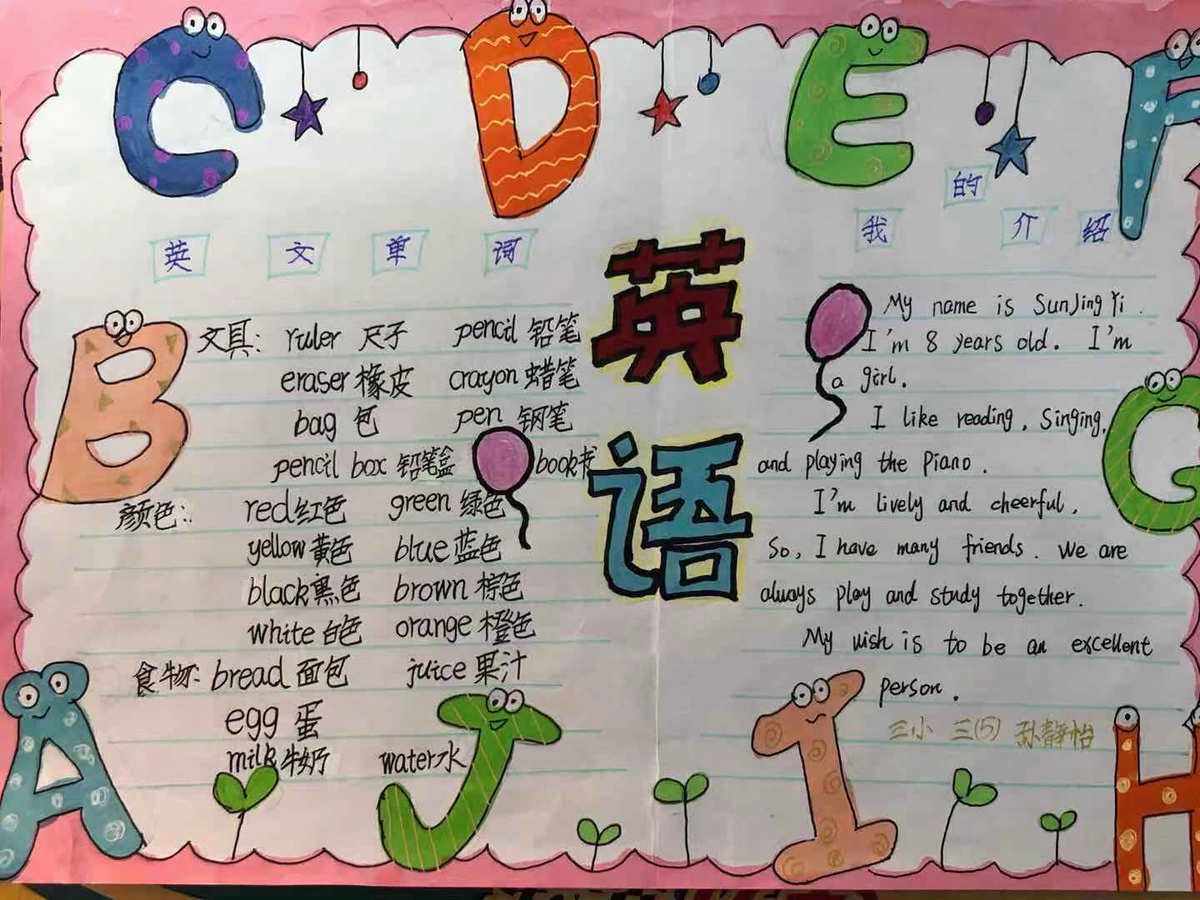 C D E F
英文单词
我的介绍
B
文具: ruler 尺子 pencil 铅笔
eraser 橡皮 crayon 蜡笔
bag 包 pen 钢笔
pencil box 铅笔盒 book 书
颜色: red 红色 green 绿色
yellow 黄色 blue 蓝色
black 黑色 brown 棕色
white 白色 orange 橙色
食物: bread 面包 juice 果汁
egg 蛋
milk 牛奶 water 水
A
J
英
语
My name is SunJingYi.
I'm 8 years old. I'm
a girl.
I like reading, singing,
and playing the piano.
I'm lively and cheerful,
So, I have many friends. We are
always play and study together.
My wish is to be an excellent
person.
三小 三(5) 孙静怡
G
I
H